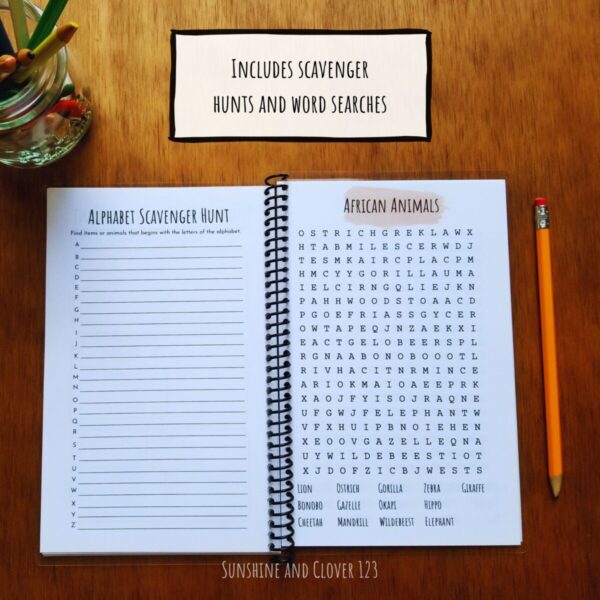 Includes scavenger
hunts and word searches
Alphabet Scavenger Hunt
Find items or animals that begins with the letters of the alphabet.
A
B
C
D
E
F
G
H
I
J
K
L
M
N
O
P
Q
R
S
T
U
V
W
X
Y
Z
African Animals
O S T R I C H G R E K L A W X
H T A B M I L E S C E R W D J
T E S M K A I R C P L A C P M
H M C Y Y G O R I L L A U M A
I E L C I R N G Q L I E J K N
P A H H W O O D S T O A A C D
P G O E F R I A S S G Y C E R
O W T A P E Q J N Z A E K X I
E A C T G E L O B E E R S P L
R G N A A B O N O B O O O T L
R I V H A C I T N R M I N C E
A R I O K M A I O A E E P R K
X A O J F Y I S O J R A Q N E
U F G W J F E L E P H A N T W
V F X H U I P B N O I E H E N
X E O O V G A Z E L L E Q N A
U Y W I L D E B E E S T I O T
X J D O F Z I C B J W E S T S
Lion Ostrich Gorilla Zebra Giraffe
Bonobo Gazelle Okapi Hippo
Cheetah Mandrill Wildebeest Elephant
Sunshine and Clover 123